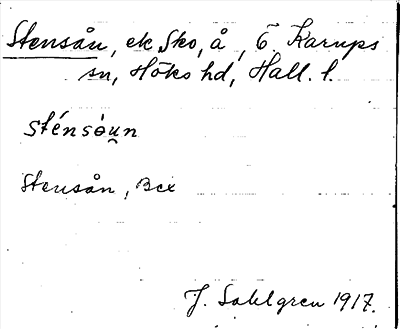 Stensån, ek, Sko, å, Ö. Karups
sn, Höks hd, Hall. l.
sténsòu̯n
Stensån, Bex
J. Sahlgren 1917.